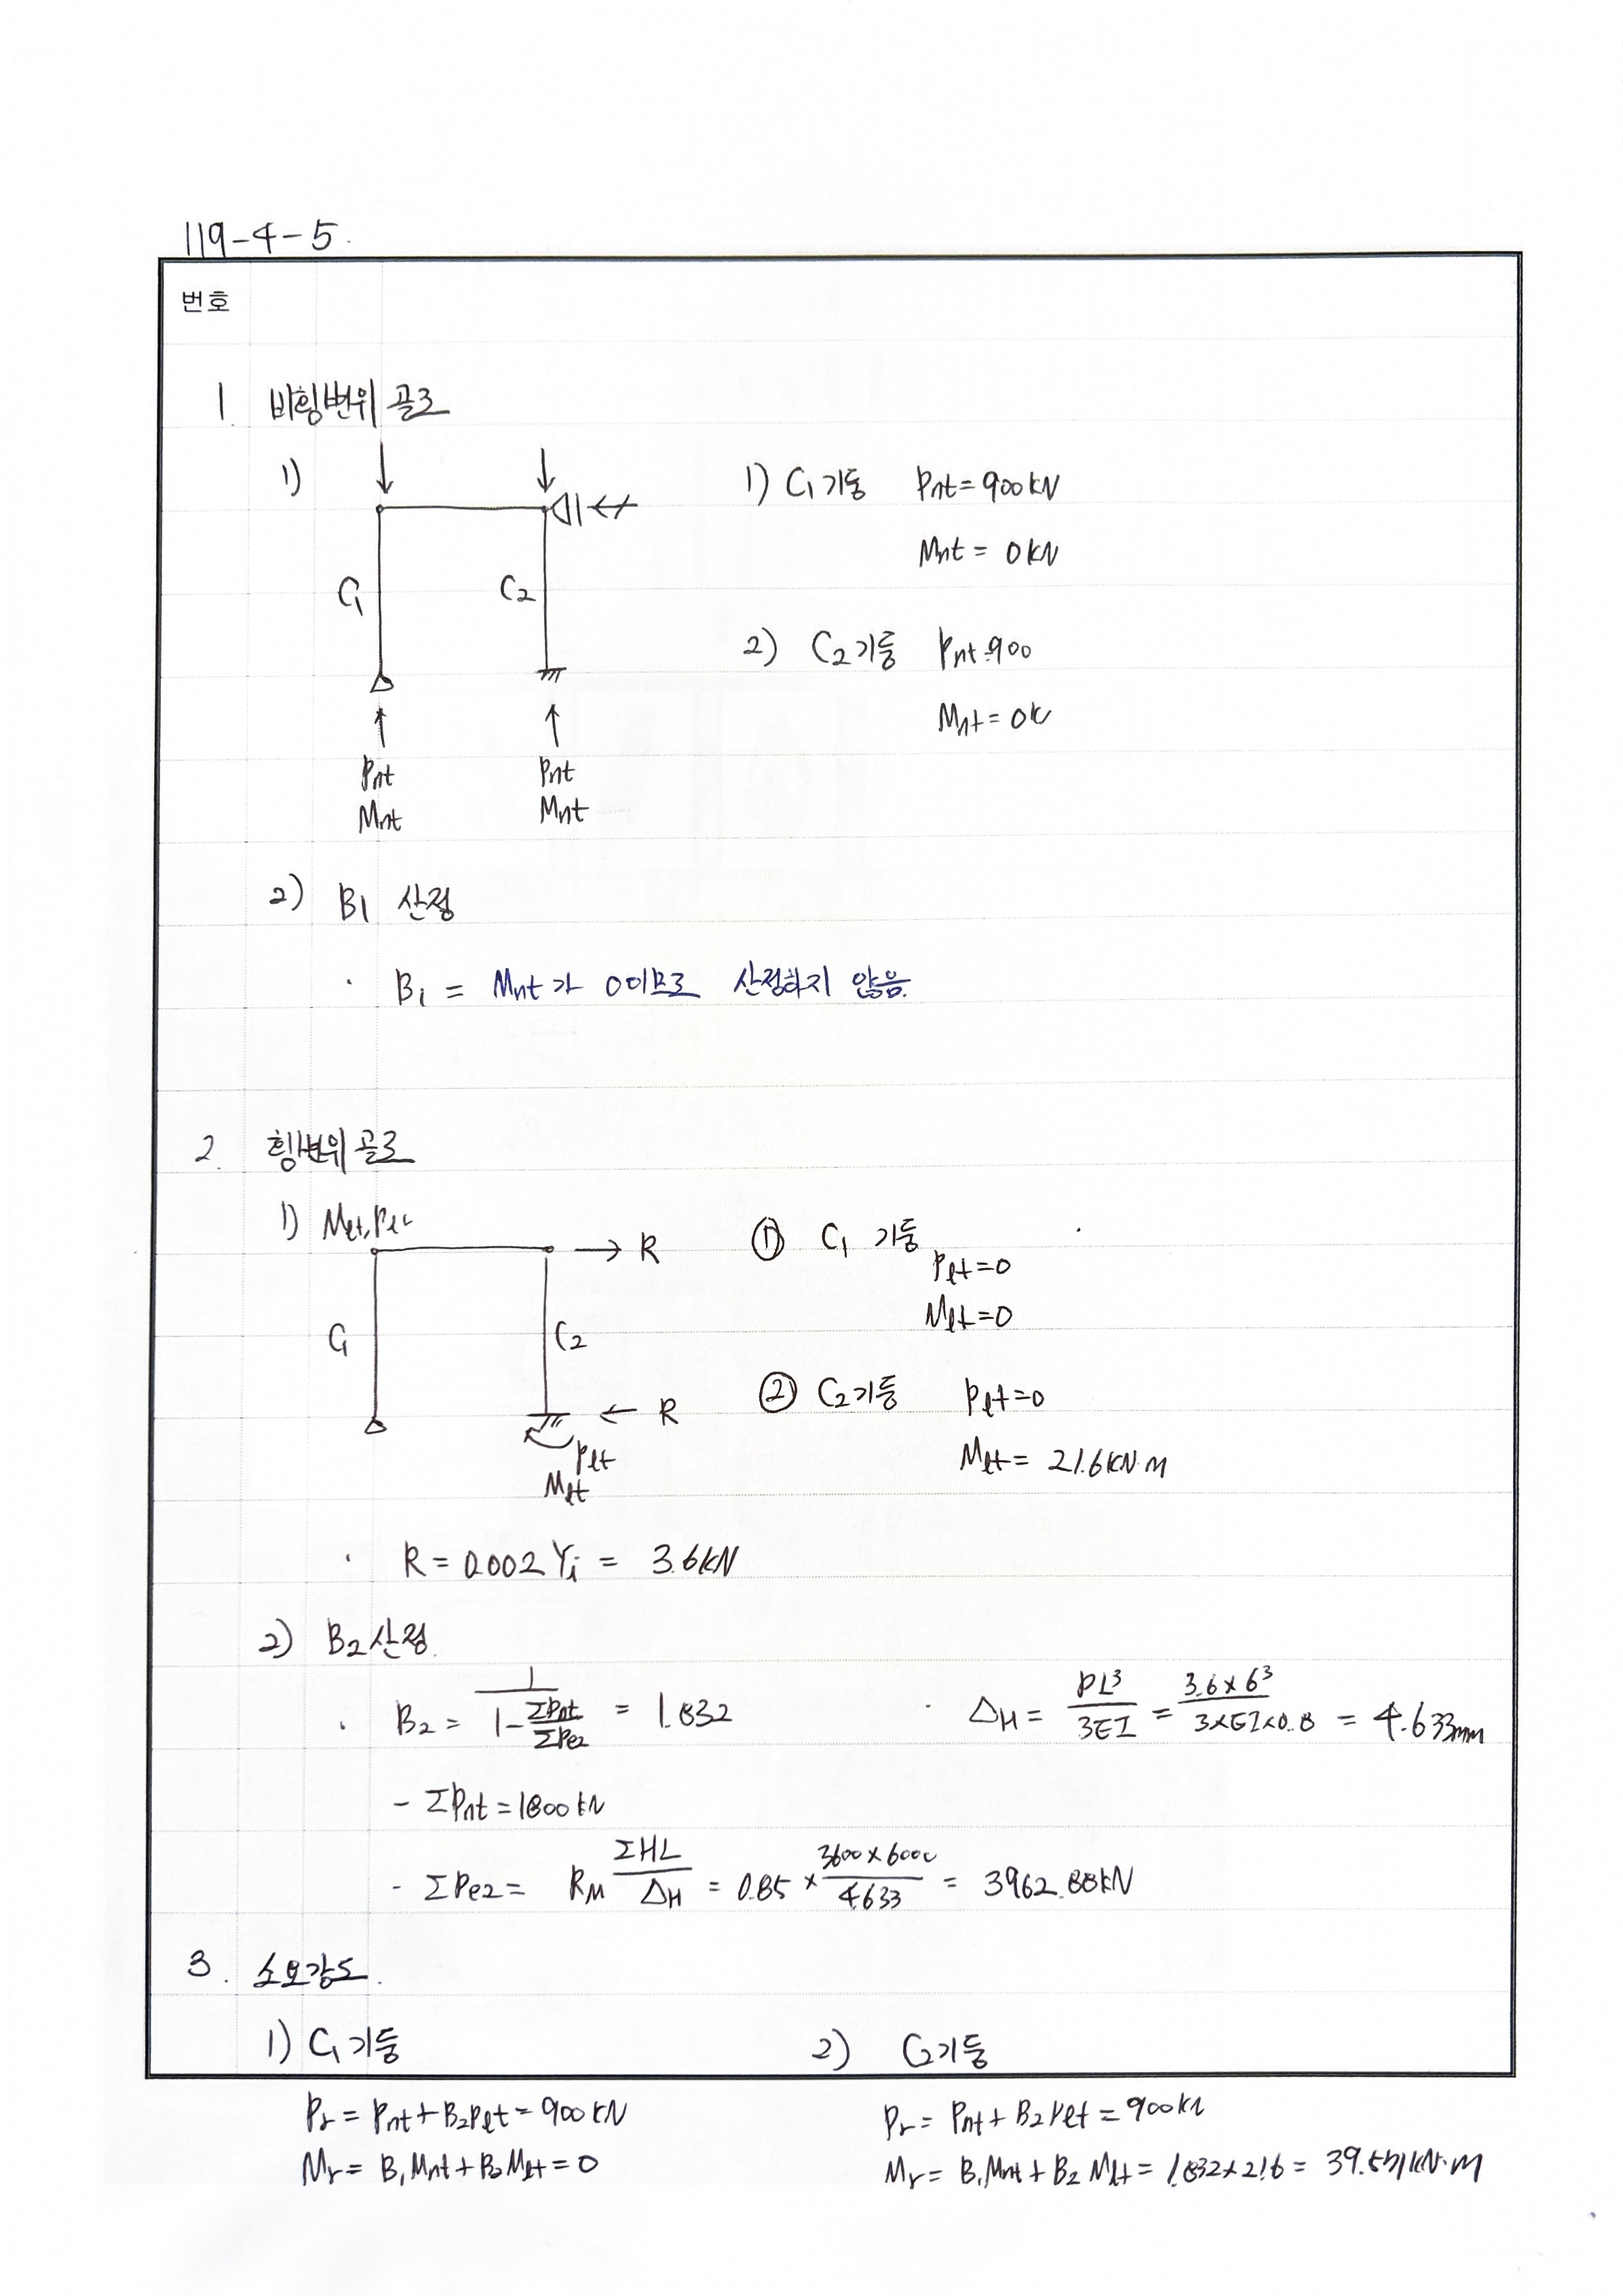 119-4-5.
번호
1. 비횡변위 골조
1)
C1
C2
Pnt
Mnt
Pnt
Mnt
1) C1 기둥 Pnt = 900kN
Mnt = 0kN
2) C2 기둥 Pnt=900
Mnt = 0k
2) B1 산정
· B1 = Mnt가 0이므로 산정하지 않음.
2. 횡변위 골조
1) Mlt, Plt
C1
C2
→ R
← R
Plt
Mlt
① C1 기둥
Plt=0
Mlt=0
② C2기둥 Plt=0
Mlt = 21.6kN·m
· R = 0.002 Yi = 3.6kN
2) B2 산정.
· B2 = 1/(1-ΣPnt/ΣPe2) = 1.832
· ΔH = PL³/3EI = 3.6×6³/3×EI×0.8 = 4.633mm
- ΣPnt = 1800kN
- ΣPe2 = RM ΣHL/ΔH = 0.85 × 3600×6000/4.633 = 3962.88kN
3. 소요강도.
1) C1 기둥
Pr = Pnt + B2Plt = 900kN
Mr = B1Mnt + B2Mlt = 0
2) C2기둥
Pr = Pnt + B2Plt = 900kN
Mr = B1Mnt + B2 Mlt = 1.832×21.6 = 39.571kN·m